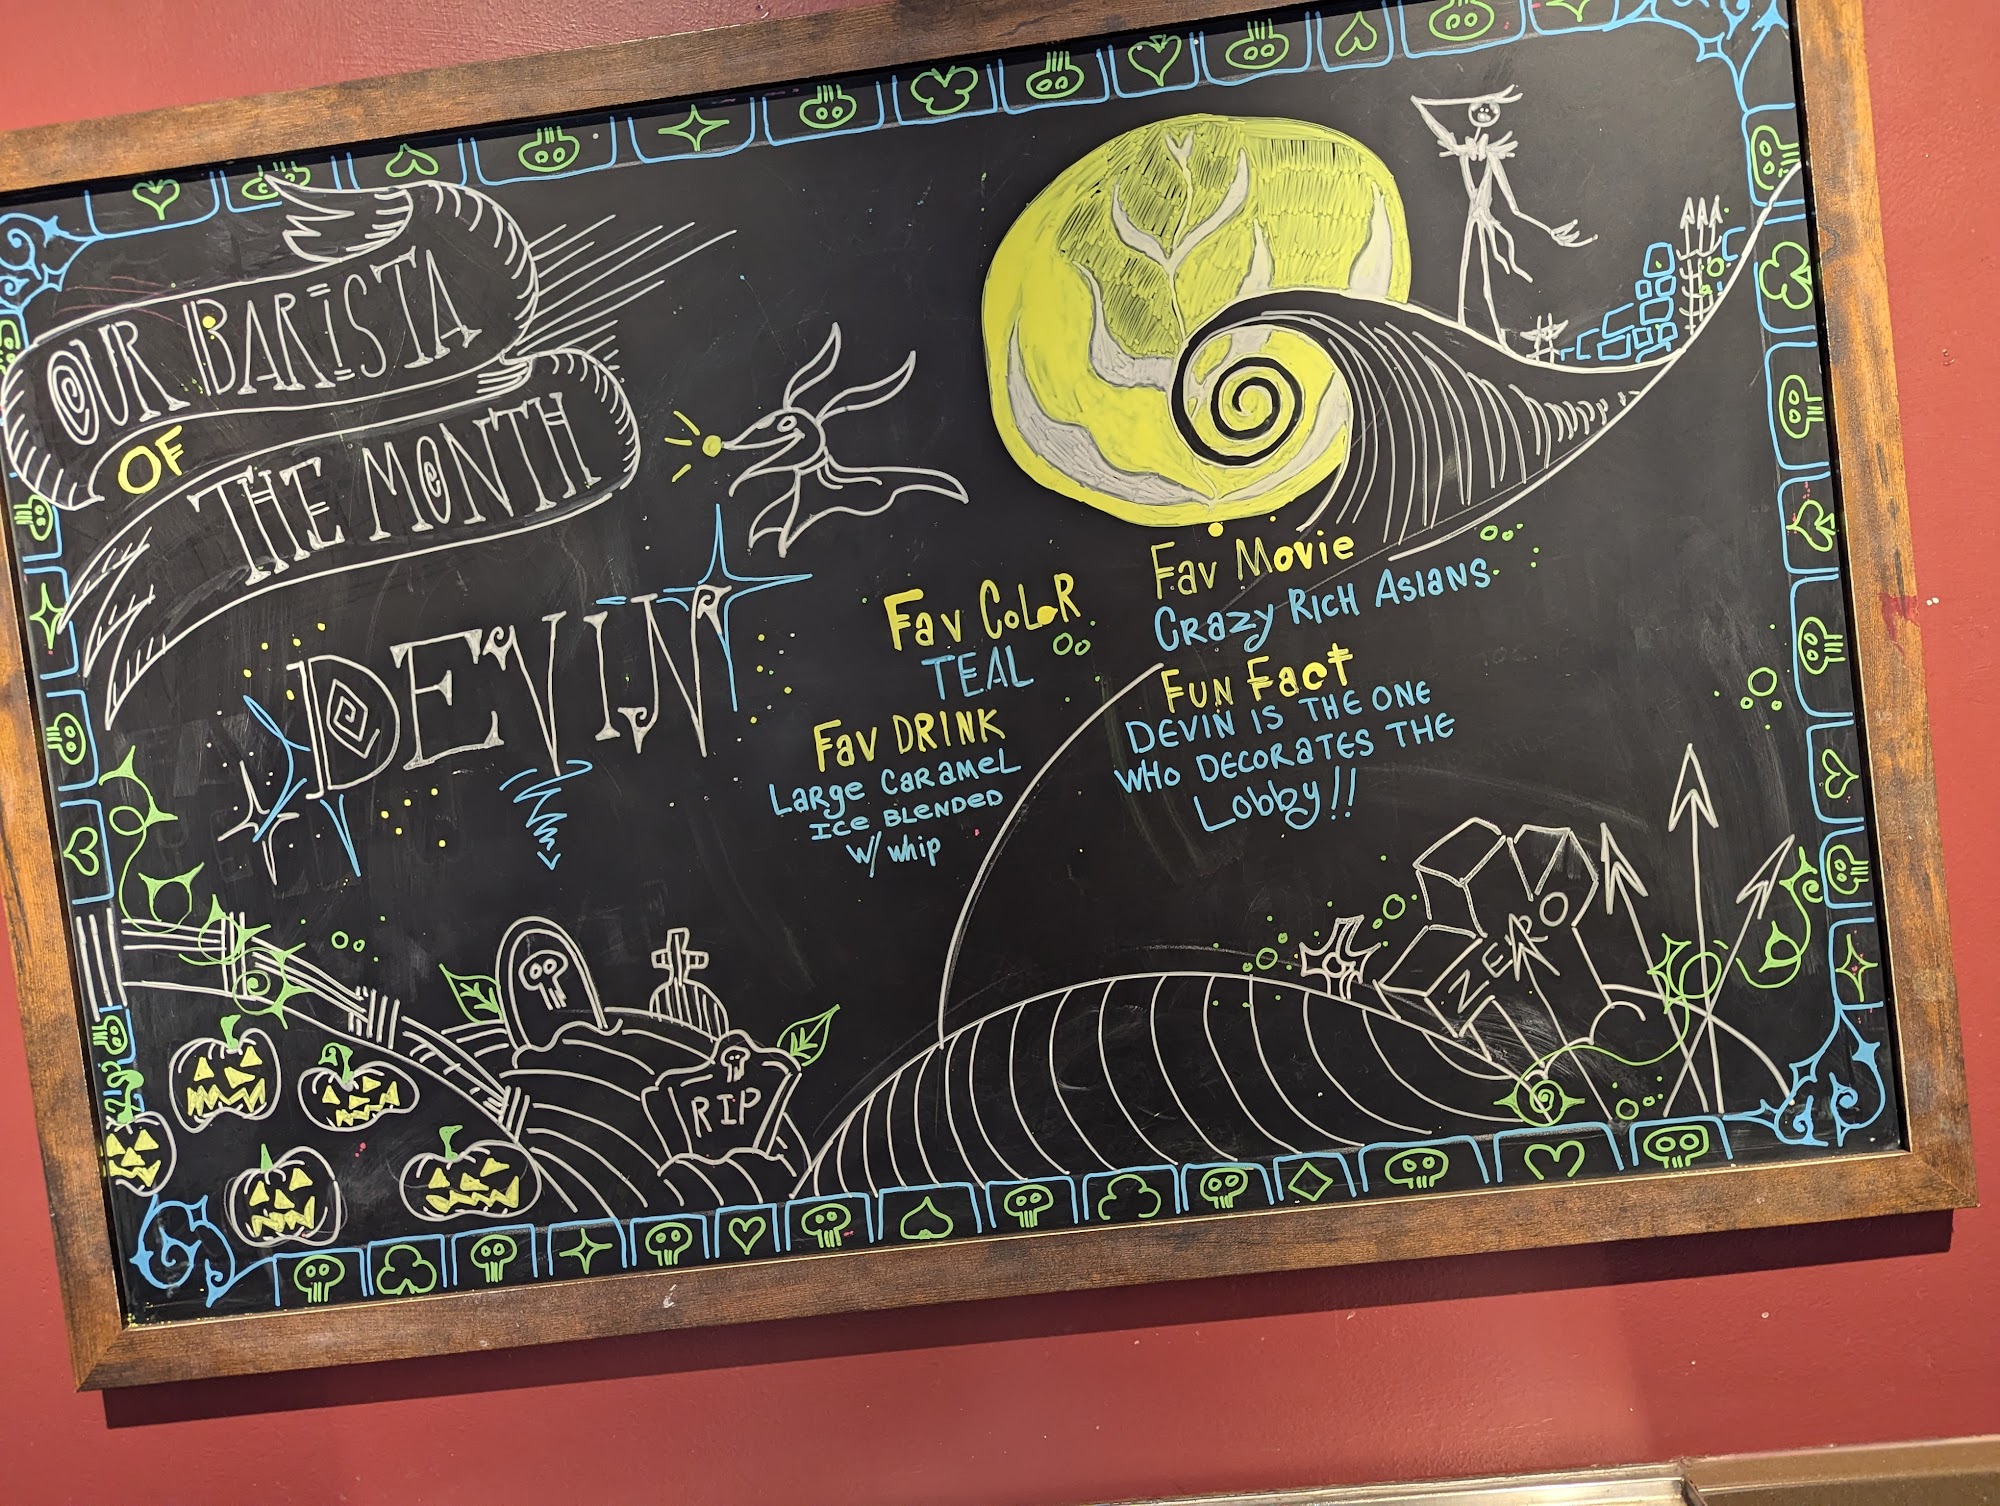 OUR BARISTA
OF
THE MONTH
DEVIN
Fav COLOR
TEAL
Fav DRINK
Large Caramel
Ice Blended
w/ whip
Fav Movie
Crazy Rich Asians
Fun Fact
DEVIN IS THE ONE
WHO DECORATES THE
Lobby!!
ZERO
RIP